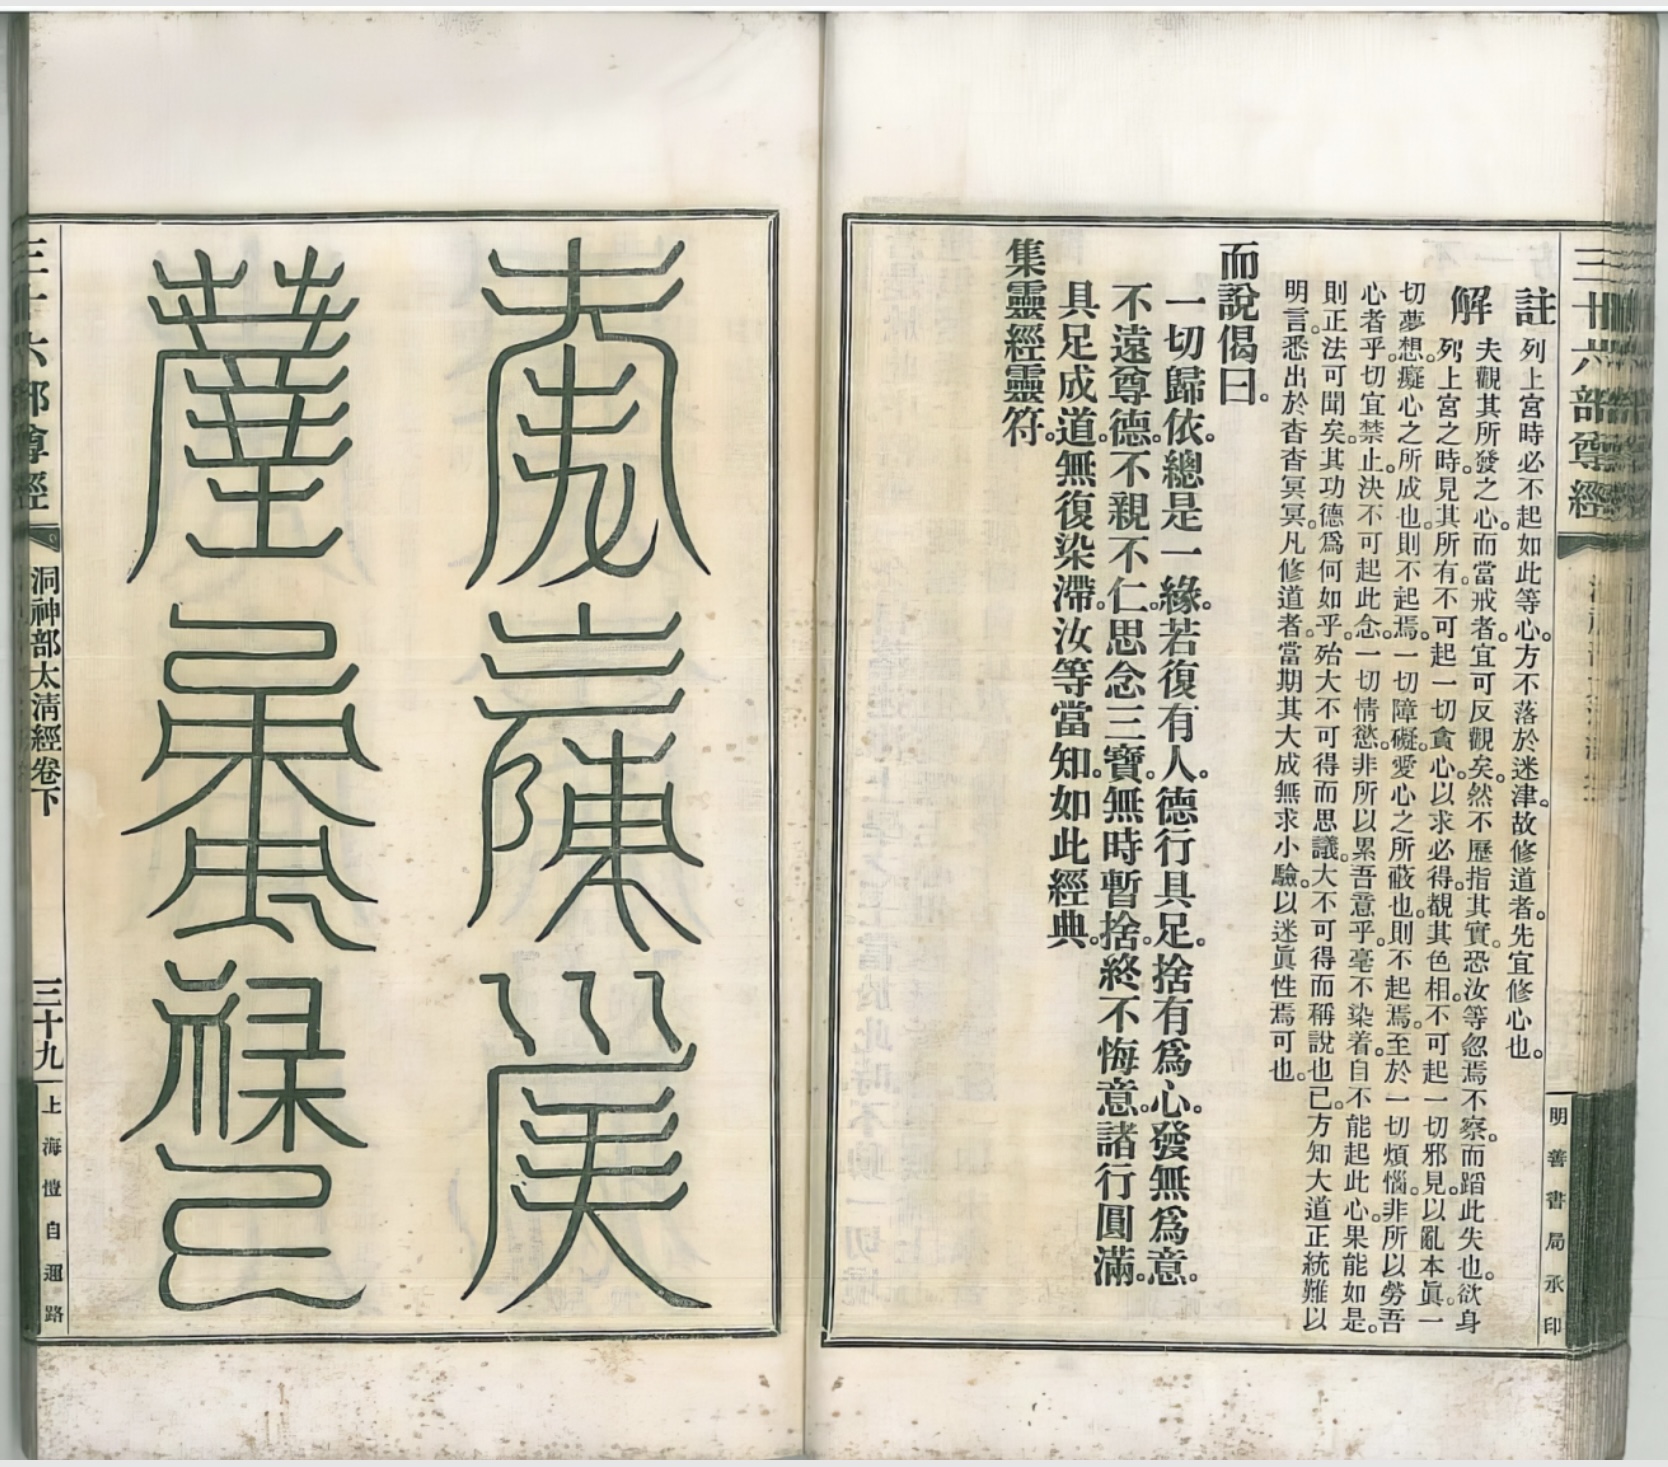 三十六部尊經
明善書局承印
註 列上宮時必不起如此等心。方不落於迷津。故修道者。先宜修心也。
解 夫觀其所發之心。而當戒者。宜可反觀矣。然不歷指其實。恐汝等忽焉不察。而蹈此失也。欲身
列上宮之時。見其所有。不可起一切貪心。以求必得。覩其色相。不可起一切邪見。以亂本眞。一
切夢想。癡心之所成也。則不起焉。一切障礙。愛心之所蔽也。則不起焉。至於一切煩惱。非所以勞吾
心者乎。切宜禁止。決不可起此念。一切情慾。非所以累吾意乎。毫不染着。自不能起此心。果能如是。
則正法可聞矣。其功德爲何如乎。殆大不可得而思議。大不可得而稱說也。已方知大道正統難以
明言。悉出於杳杳冥冥。凡修道者。當期其大成。無求小驗。以迷眞性焉可也。
而說偈曰。
一切歸依。總是一緣。若復有人。德行具足。捨有爲心。發無爲意。
不遠尊德。不親不仁。思念三寶。無時暫捨。終不悔意。諸行圓滿。
具足成道。無復染滯。汝等當知。如此經典。
集靈經靈符。
三十六部尊經
洞神部太清經卷下
三十九
上海愷自邇路